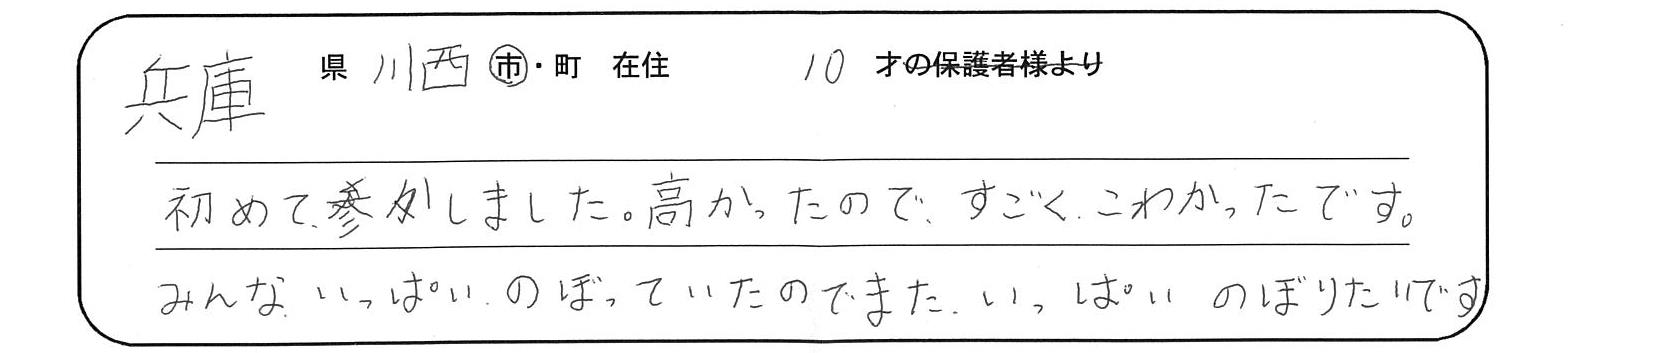 兵庫 県 川西 市・町 在住 10 才の保護者様より
初めて、参列しました。高かったので、すごく、こわかったです。
みんな、いっぱい、のぼっていたのでまた、いっぱい のぼりたいです